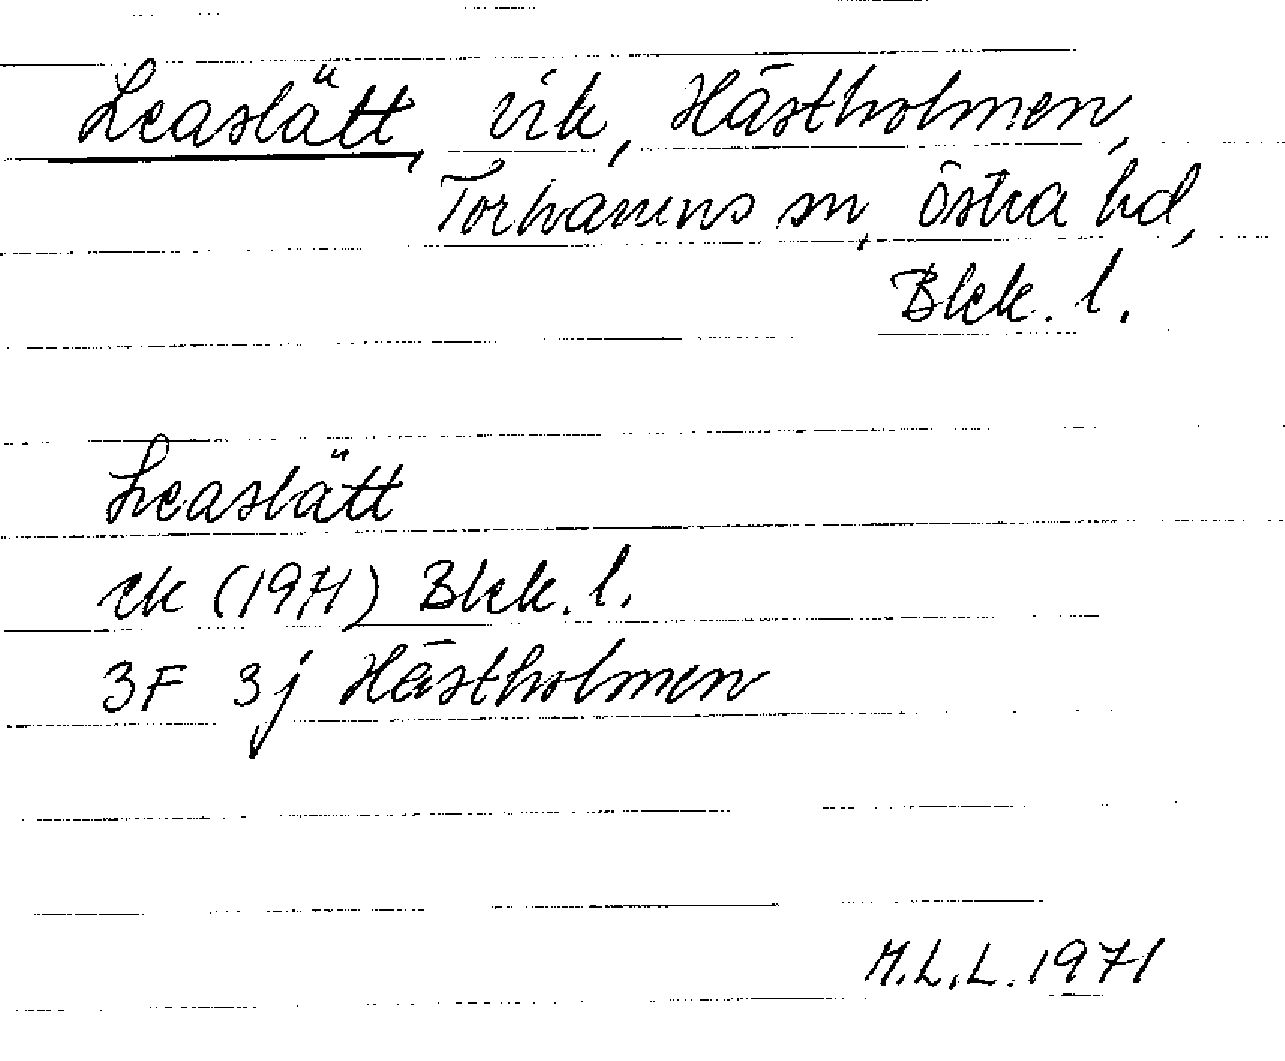 Leaslätt, vik, Hästholmen,
Torhamns sn, Östra hd,
Blek. l.
Leaslätt
ek (1971) Blek. l.
3F 3j Hästholmen
M.L.L. 1971